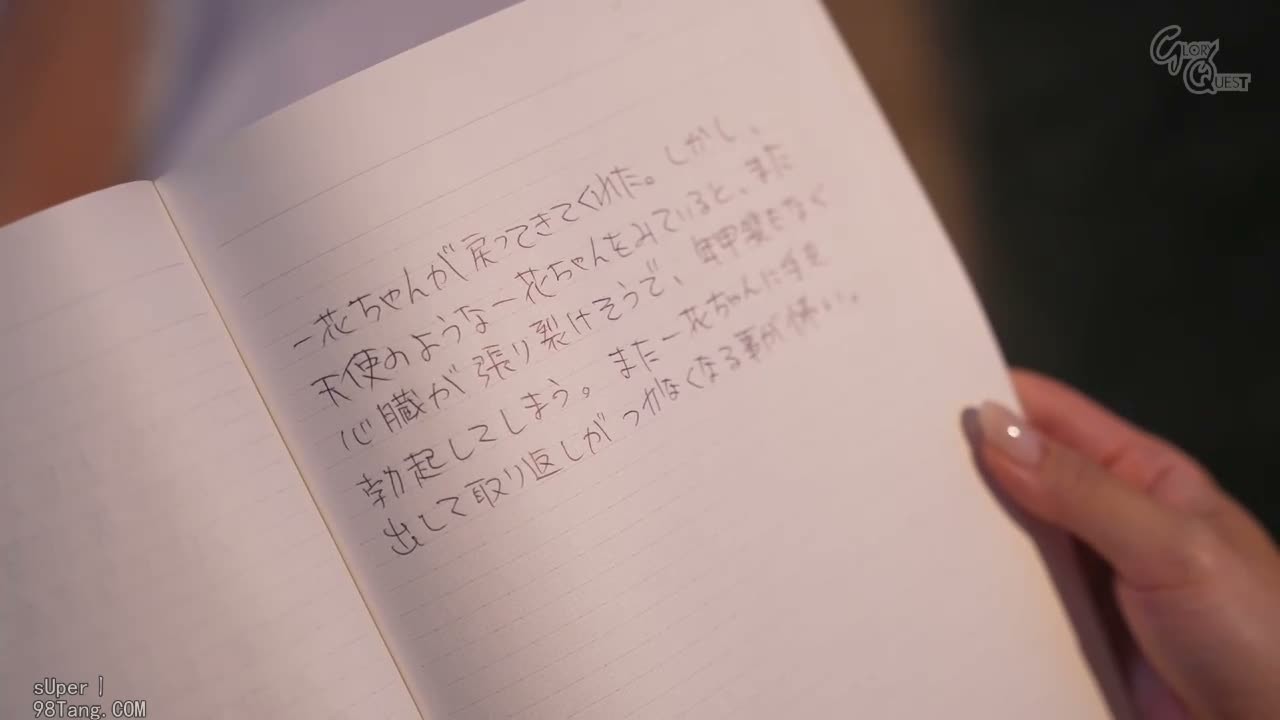 GLORY QUEST
一花ちゃんが戻ってきてくれた。しかし、
天使のような一花ちゃんをみていると、また
心臓が張り裂けそうで、年甲斐もなく
勃起してしまう。また一花ちゃんに手を
出して取り返しがつかなくなる事が怖い。
sUper |
98Tang.COM